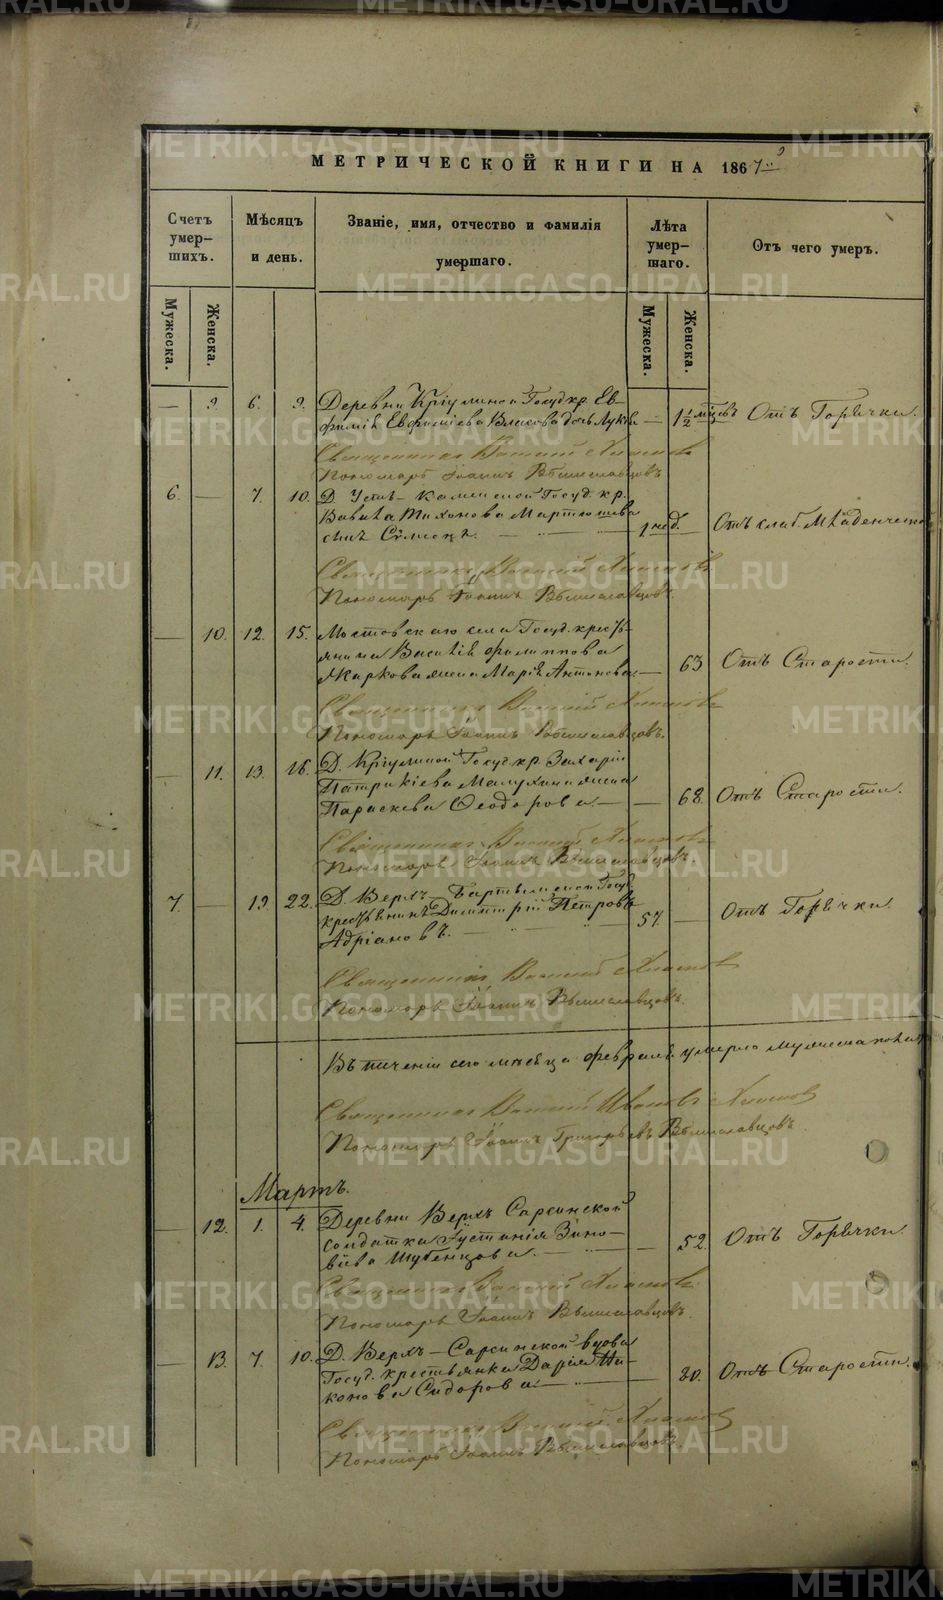 МЕТРИЧЕСКОЙ КНИГИ НА 1867
Счетъ умер-шихъ.
Мѣсяцъ и день.
Званіе, имя, отчество и фамилія умершаго.
Лѣта умер-шаго.
Отъ чего умеръ.
Мужеска.
Женска.
Мужеска.
Женска.
— 9. 6. 9. Деревни Кріулиной Госуд. кр. Ев-
фимія Евфиміева Власова дочь — 1½ мѣсвъ Отъ Горячки.
Священникъ Василій
Пономарь Іоаннъ Вышеславцовъ
6. — 7. 10. Д. Усть-Каменской Госуд. кр.
Вавила Тихонова Мартюшева
сынъ 1 нед. Отъ слаб. Младенчест.
Священникъ Василій
Пономарь Іоаннъ Вышеславцовъ.
— 10. 12. 15. Мостовскаго села Госуд. кресть-
янина Василія Филиппова
Жаркова жена Марія Антонова — 63 Отъ Старости.
Священникъ Василій
Пономарь Іоаннъ Вышеславцовъ.
— 11. 13. 16. Д. Кріулиной Госуд. кр. Захарія
Патрикіева Малухина жена
Параскева Ѳеодорова — — 68. Отъ Старости.
Священникъ Василій
Пономарь Іоаннъ Вышеславцовъ.
7. — 19. 22. Д. Верхъ-Бартымской Госуд
крестьянинъ Димитрій Петровъ
Адріановъ. 57. — Отъ Горячки.
Священникъ Василій
Пономарь Іоаннъ Вышеславцовъ.
Въ теченіи сего мѣсяца февраля умерло мужеска пола
Священникъ Василій Ивановъ
Пономарь Іоаннъ Григорьевъ Вышеславцовъ.
Мартъ.
— 12. 1. 4. Деревни Верхъ Сарсинской
солдатка Іустинія Зино-
віева Шубенцова. — 52. Отъ Горячки.
Священникъ Василій
Пономарь Іоаннъ Вышеславцовъ.
— 13. 7. 10. Д. Верхъ-Сарсинской вдова
Госуд. крестьянка Дарія Ни-
конова Сидорова — 80. Отъ Старости.
Священникъ Василій
Пономарь Іоаннъ Вышеславцовъ.
METRIKI.GASO-URAL.RU